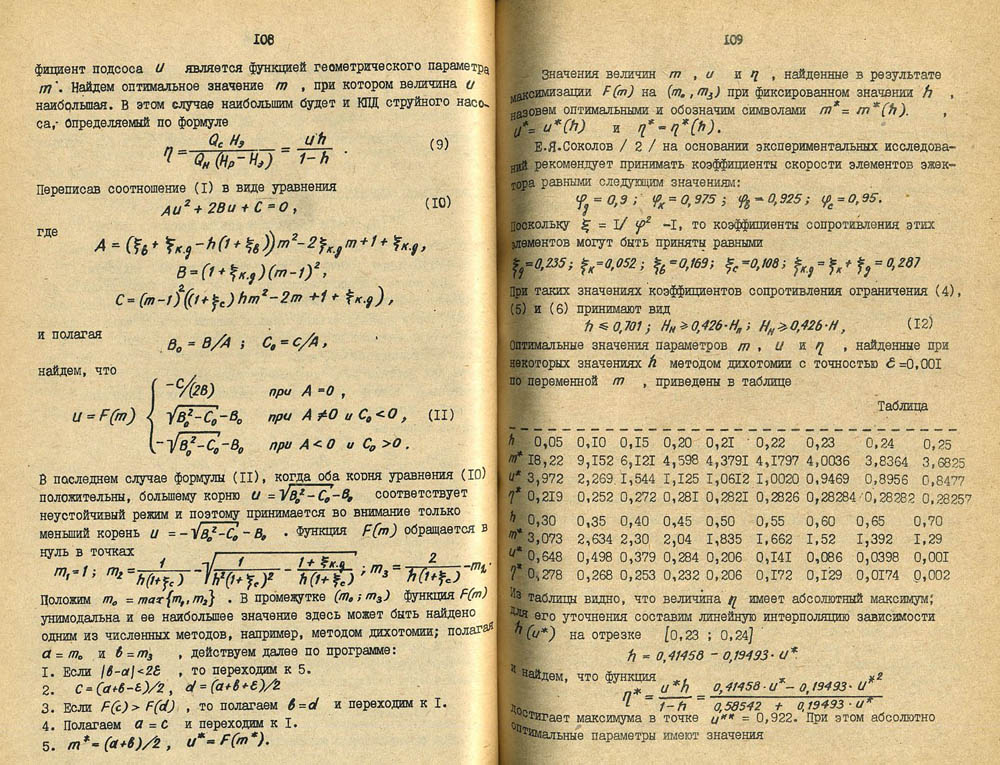 108
фициент подсоса u является функцией геометрического параметра
m. Найдем оптимальное значение m , при котором величина u
наибольшая. В этом случае наибольшим будет и КПД струйного насо-
са, определяемый по формуле
η = Qc Hэ / Qн (Hр − Hэ) = uh / 1−h . (9)
Переписав соотношение (I) в виде уравнения
Au² + 2Bu + C = 0 , (10)
где
A = (ξв + ξк.д − h(1+ξв))m² − 2ξк.д m + 1 + ξк.д ,
B = (1+ξк.д)(m−1)² ,
C = (m−1)²((1+ξc)hm² − 2m + 1 + ξк.д) ,
и полагая
B₀ = B/A ; C₀ = C/A ,
найдем, что
−C/(2B) при A = 0 ,
u = F(m) √B₀²−C₀ − B₀ при A ≠ 0 и C₀ < 0 , (II)
−√B₀²−C₀ − B₀ при A < 0 и C₀ > 0 .
В последнем случае формулы (II), когда оба корня уравнения (10)
положительны, большему корню u = √B₀²−C₀ − B₀ соответствует
неустойчивый режим и поэтому принимается во внимание только
меньший корень u = −√B₀²−C₀ − B₀ . Функция F(m) обращается в
нуль в точках
m₁ = 1 ; m₂ = 1 / h(1+ξc) − √ 1 / h²(1+ξc)² − 1+ξк.д / h(1+ξc) ; m₃ = 2 / h(1+ξc) − m₂.
Положим m₀ = max{m₁, m₂} . В промежутке (m₀ ; m₃) функция F(m)
унимодальна и ее наибольшее значение здесь может быть найдено
одним из численных методов, например, методом дихотомии; полагая
a = m₀ и b = m₃ , действуем далее по программе:
1. Если |b−a| < 2ε , то переходим к 5.
2. C = (a+b−ε)/2 , d = (a+b+ε)/2
3. Если F(c) > F(d) , то полагаем b = d и переходим к 1.
4. Полагаем a = c и переходим к 1.
5. m* = (a+b)/2 , u* = F(m*).
109
Значения величин m , u и η , найденные в результате
максимизации F(m) на (m₀, m₃) при фиксированном значении h ,
назовем оптимальными и обозначим символами m* = m*(h). ,
u* = u*(h) и η* = η*(h).
Е.Я.Соколов / 2 / на основании экспериментальных исследова-
ний рекомендует принимать коэффициенты скорости элементов эжек-
тора равными следующим значениям:
φд = 0,9 ; φк = 0,975 ; φв = 0,925 ; φc = 0,95.
Поскольку ξ = I/ φ² −I, то коэффициенты сопротивления этих
элементов могут быть приняты равными
ξд = 0,235 ; ξк = 0,052 ; ξв = 0,169 ; ξc = 0,108 ; ξк.д = ξк + ξд = 0,287
При таких значениях коэффициентов сопротивления ограничения (4),
(5) и (6) принимают вид
h ⩽ 0,701 ; Hн ⩾ 0,426·Hп ; Hн ⩾ 0,426·H , (12)
Оптимальные значения параметров m , u и η , найденные при
некоторых значениях h методом дихотомии с точностью ε =0,001
по переменной m , приведены в таблице
Таблица
h 0,05 0,10 0,15 0,20 0,21 0,22 0,23 0,24 0,25
m* 18,22 9,152 6,121 4,598 4,3791 4,1797 4,0036 3,8364 3,6825
u* 3,972 2,269 1,544 1,125 1,0612 1,0020 0,9469 0,8956 0,8477
η* 0,219 0,252 0,272 0,281 0,2821 0,2826 0,28284 0,28282 0,28257
h 0,30 0,35 0,40 0,45 0,50 0,55 0,60 0,65 0,70
m* 3,073 2,634 2,30 2,04 1,835 1,662 1,52 1,392 1,29
u* 0,648 0,498 0,379 0,284 0,206 0,141 0,086 0,0398 0,001
η* 0,278 0,268 0,253 0,232 0,206 0,172 0,129 0,0174 0,002
Из таблицы видно, что величина η имеет абсолютный максимум;
для его уточнения составим линейную интерполяцию зависимости
h(u*) на отрезке [0,23 ; 0,24]
h = 0,41458 − 0,19493· u*
и найдем, что функция
η* = u*h / 1−h = 0,41458·u* − 0,19493·u*² / 0,58542 + 0,19493·u*
достигает максимума в точке u** = 0,922. При этом абсолютно
оптимальные параметры имеют значения